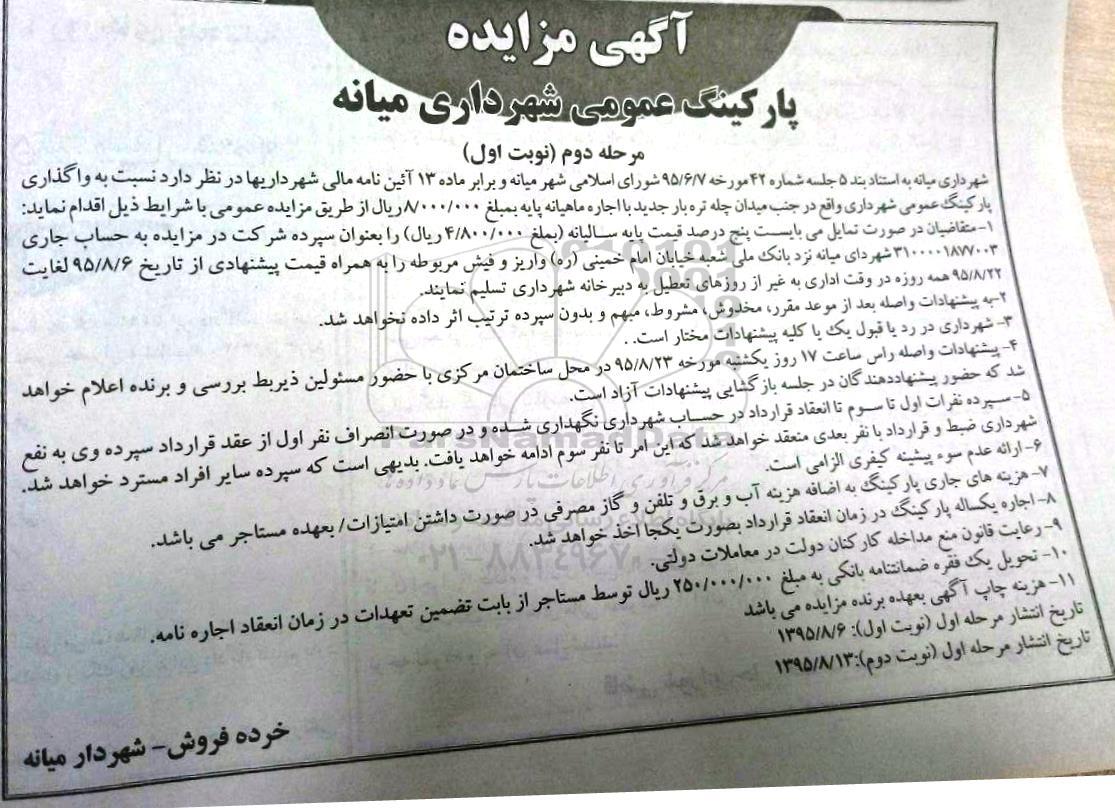 آگهی مزایده
پارکینگ عمومی شهرداری میانه
مرحله دوم (نوبت اول)
شهرداری میانه به استناد بند ۵ جلسه شماره ۴۲ مورخه ۹۵/۶/۷ شورای اسلامی شهر میانه و برابر ماده ۱۳ آئین نامه مالی شهرداریها در نظر دارد نسبت به واگذاری
پارکینگ عمومی شهرداری واقع در جنب میدان چله تره بار جدید با اجاره ماهیانه پایه بمبلغ ۸/۰۰۰/۰۰۰ ریال از طریق مزایده عمومی با شرایط ذیل اقدام نماید:
۱- متقاضیان در صورت تمایل می بایست پنج درصد قیمت پایه سالیانه (بمبلغ ۴/۸۰۰/۰۰۰ ریال) را بعنوان سپرده شرکت در مزایده به حساب جاری
۳۱۰۰۰۰۱۸۷۷۰۰۳ شهردای میانه نزد بانک ملی شعبه خیابان امام خمینی (ره) واریز و فیش مربوطه را به همراه قیمت پیشنهادی از تاریخ ۹۵/۸/۶ لغایت
۹۵/۸/۲۲ همه روزه در وقت اداری به غیر از روزهای تعطیل به دبیرخانه شهرداری تسلیم نمایند.
۲-به پیشنهادات واصله بعد از موعد مقرر، مخدوش، مشروط، مبهم و بدون سپرده ترتیب اثر داده نخواهد شد.
۳- شهرداری در رد یا قبول یک یا کلیه پیشنهادات مختار است. .
۴- پیشنهادات واصله راس ساعت ۱۷ روز یکشنبه مورخه ۹۵/۸/۲۳ در محل ساختمان مرکزی با حضور مسئولین ذیربط بررسی و برنده اعلام خواهد
شد که حضور پیشنهاددهندگان در جلسه بازگشایی پیشنهادات آزاد است.
۵- سپرده نفرات اول تا سوم تا انعقاد قرارداد در حساب شهرداری نگهداری شده و در صورت انصراف نفر اول از عقد قرارداد سپرده وی به نفع
شهرداری ضبط و قرارداد با نفر بعدی منعقد خواهد شد که این امر تا نفر سوم ادامه خواهد یافت. بدیهی است که سپرده سایر افراد مسترد خواهد شد.
۶- ارائه عدم سوء پیشینه کیفری الزامی است.
۷- هزینه های جاری پارکینگ به اضافه هزینه آب و برق و تلفن و گاز مصرفی در صورت داشتن امتیازات/ بعهده مستاجر می باشد.
۸- اجاره یکساله پارکینگ در زمان انعقاد قرارداد بصورت یکجا اخذ خواهد شد.
۹- رعایت قانون منع مداخله کارکنان دولت در معاملات دولتی.
۱۰- تحویل یک فقره ضمانتنامه بانکی به مبلغ ۲۵۰/۰۰۰/۰۰۰ ریال توسط مستاجر از بابت تضمین تعهدات در زمان انعقاد اجاره نامه.
۱۱- هزینه چاپ آگهی بعهده برنده مزایده می باشد
تاریخ انتشار مرحله اول (نوبت اول): ۱۳۹۵/۸/۶
تاریخ انتشار مرحله اول (نوبت دوم):۱۳۹۵/۸/۱۳
خرده فروش- شهردار میانه
ParsNamadData
مرکز فرآوری اطلاعات پارس نماد داده ها
۰۲۱-۸۸۳۴۹۶۷۰